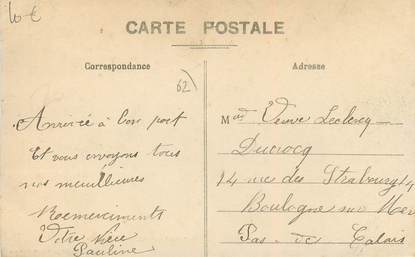 10€
CARTE POSTALE
Correspondance
Adresse
62
Arrivée à bon port
Et vous envoyons tous
nos meuilleures
Remerciments
Votre Nièce
Pauline
Mme Veuve Leclercq
Ducrocq
14 rue des Strabourg 14
Boulogne sur Mer
Pas-de Calais